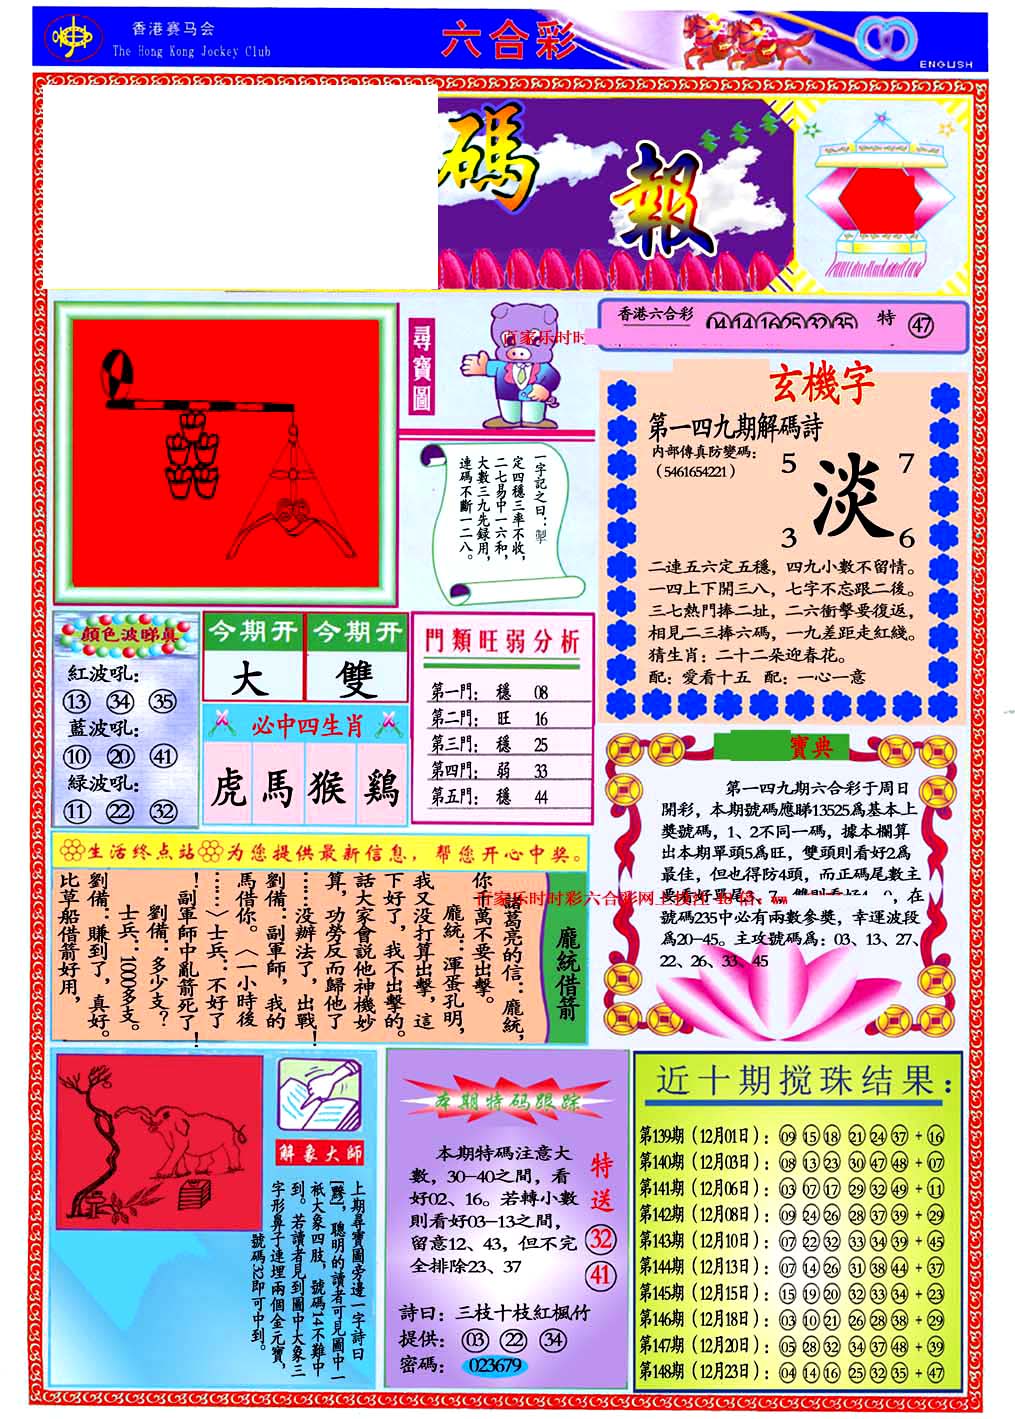 香港赛马会
The Hong Kong Jockey Club
六合彩
ENGLISH
碼
報
尋寶圖
百家乐时时
香港六合彩
04 14 16 25 32 35 特 47
玄機字
第一四九期解碼詩
内部傳真防變碼：
（5461654221）
5 7
淡
3 6
二連五六定五穩，四九小數不留情。
一四上下開三八，七字不忘跟二後。
三七熱門捧二扯，二六衝擊要復返，
相見二三捧六碼，一九差距走紅綫。
猜生肖：二十二朵迎春花。
配：愛看十五 配：一心一意
一字記之曰：
定四穩三率不收，
二七易中一六和，
大數三九先録用，
連碼不斷一二八。
顔色波睇真
紅波吼：
13 34 35
藍波吼：
10 20 41
緑波吼：
11 22 32
今期开 今期开
大 雙
必中四生肖
虎 馬 猴 鷄
門類旺弱分析
第一門： 穩 08
第二門： 旺 16
第三門： 穩 25
第四門： 弱 33
第五門： 穩 44
寶典
第一四九期六合彩于周日
開彩，本期號碼應睇13525爲基本上
獎號碼，1、2不同一碼，據本欄算
出本期單頭5爲旺，雙頭則看好2爲
最佳，但也得防4頭，而正碼尾數主
要看好單尾3、7，雙則看好4、0，在
號碼235中必有兩數參獎，幸運波段
爲20-45。主攻號碼爲：03、13、27、
22、26、33、45
生活终点站 为您提供最新信息，帮您开心中奖。
百家乐时时彩六合彩网上投注
龐統借箭
諸葛亮的信：龐統，
你千萬不要出擊。
龐統：渾蛋孔明，
我又没打算出擊，這
下好了，我不出擊的。
話大家會説他神機妙
算，功勞反而歸他了
……没辦法了，出戰！
劉備：副軍師，我的
馬借你。〈一小時後
……〉士兵：不好了
！副軍師中亂箭死了！
劉備：多少支？
士兵：1000多支。
劉備：賺到了，真好。
比草船借箭好用，
解象大師
上期尋寶圖旁邊一字詩曰
[黔]，聰明的讀者可見圖中一
衹大象四肢，號碼14不難中
到。若讀者見到圖中大象三
字形鼻子連埋兩個金元寶，
號碼32即可中到。
本期特码跟踪
本期特碼注意大
數，30-40之間，看
好02、16。若轉小數
則看好03-13之間，
留意12、43，但不完
全排除23、37
特送
32
41
詩曰：三枝十枝紅楓竹
提供： 03 22 34
密碼： 023679
近十期搅珠结果：
第139期（12月01日）：09 15 18 21 24 37 + 16
第140期（12月03日）：08 13 23 30 47 48 + 07
第141期（12月06日）：03 07 17 29 32 49 + 11
第142期（12月08日）：09 24 26 28 37 39 + 29
第143期（12月10日）：07 22 32 33 34 39 + 45
第144期（12月13日）：07 14 26 31 38 44 + 37
第145期（12月15日）：15 19 20 32 33 34 + 23
第146期（12月18日）：03 10 21 26 28 38 + 29
第147期（12月20日）：05 28 32 34 37 48 + 39
第148期（12月23日）：04 14 16 25 32 35 + 47